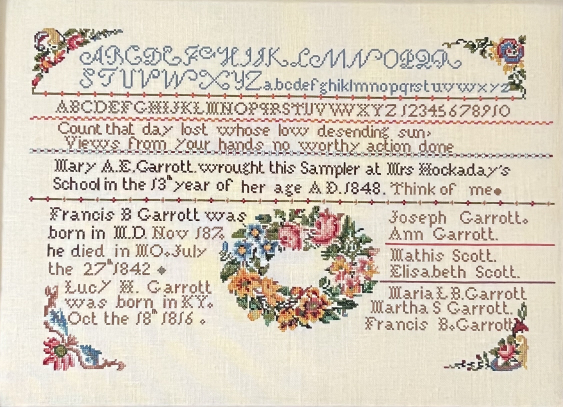 ABCDEFGHIJKLMNOPQR
STUVWXYZ abcdefghiklmnopqrstuvwxyz
ABCDEFGHIJKLMNOPQRSTUVWXYZ 12345678910
Count that day lost whose low desending sun,
Views from your hands no worthy action done
Mary A.E. Garrott. wrought this Sampler at Mrs Hockaday's
School in the 13th year of her age A.D. 1848. Think of me.
Francis B Garrott was
born in M.D. Nov
he died in MO. July
the 27th 1842
Lucy H. Garrott
was born in KY.
Oct the 18th 1816.
Joseph Garrott.
Ann Garrott.
Mathis Scott.
Elisabeth Scott.
Maria L B. Garrott
Martha S Garrott.
Francis B. Garrott